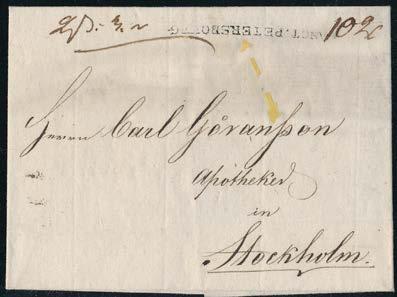 SANCT. PETERSBOURG.
102
Herrn Carl Göransson
Apotheker
in
Stockholm.